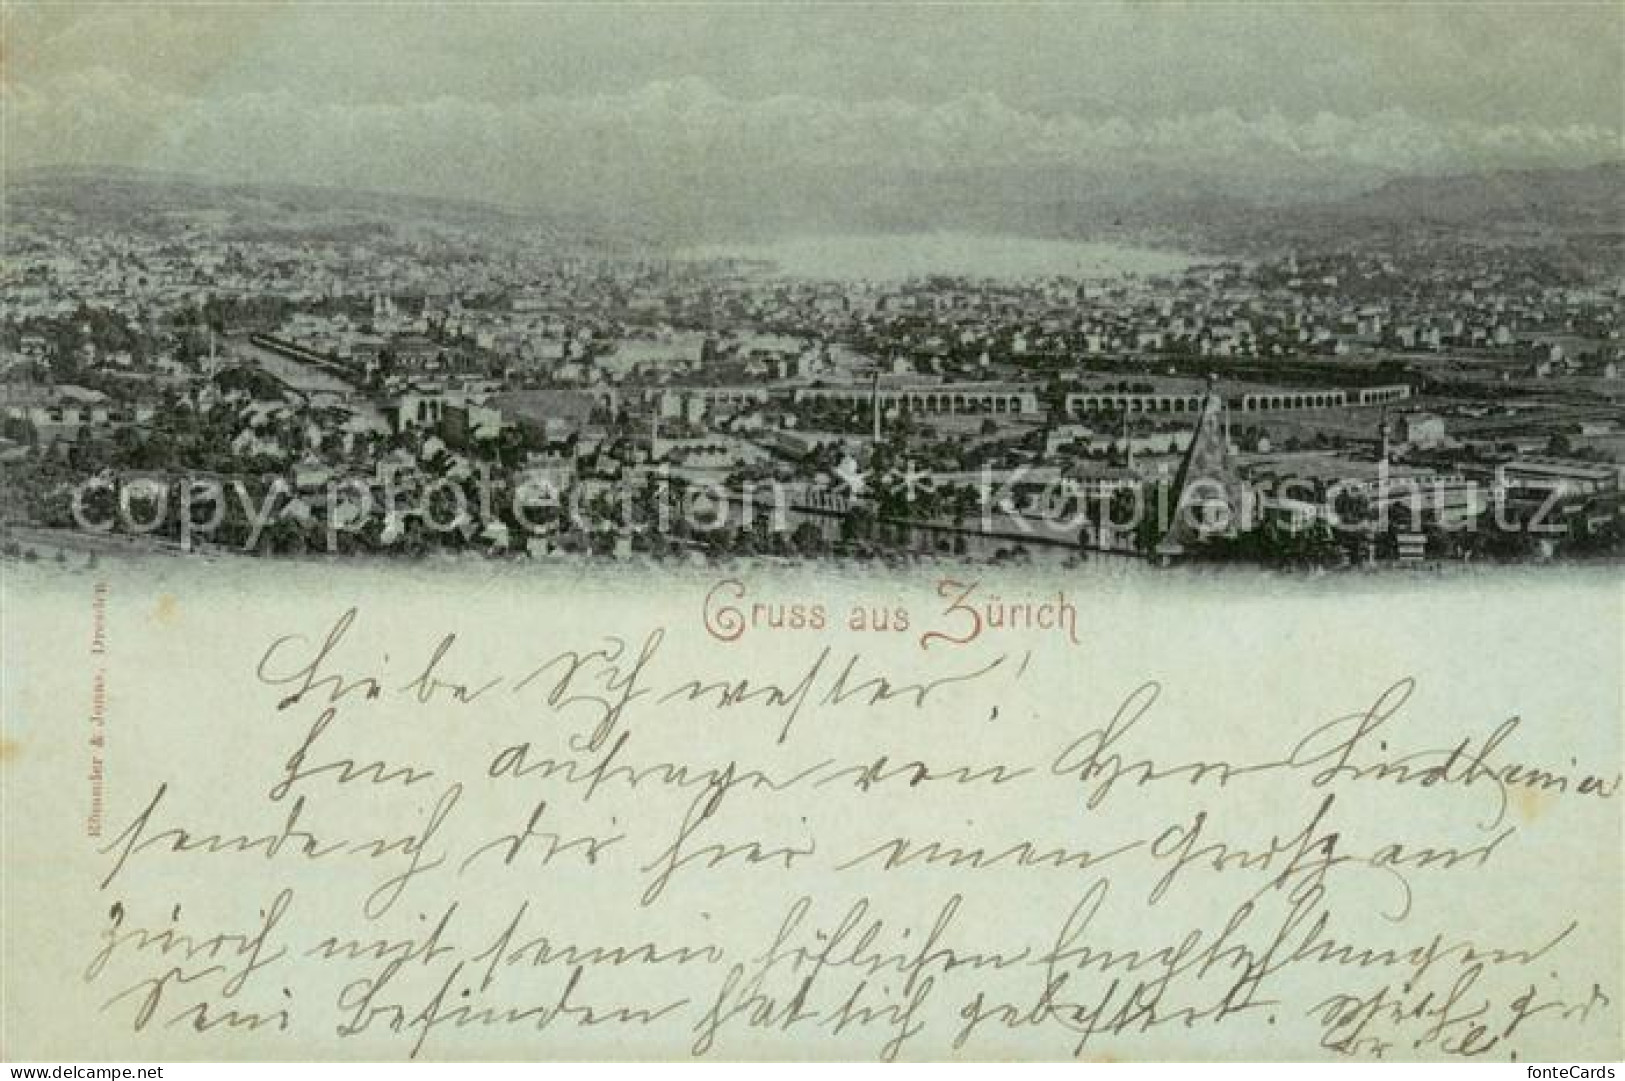 copy protection ** Kopierschutz
Gruss aus Zürich
Römmler & Jonas, Dresden
Liebe Schwester!
Im Aufrage von Herr
sende ich dir hier einen Gruß aus
Zürich mit seinen höflichen Empfehlungen
Sein Befinden hat sich gebessert.
www.delcampe.net
fonteCards